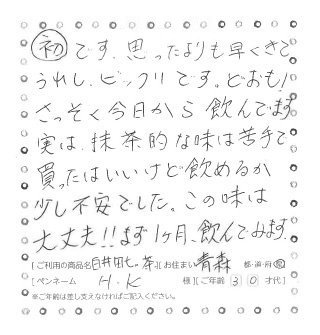 初です.思ったよりも早くきて
うれし、ビックリです。どおも!
さっそく今日から飲んでます
実は、抹茶的な味は苦手で
買ったはいいけど飲めるか
少し不安でした。この味は
大丈夫!!まず1ヶ月、飲んでみます.
[ご利用の商品名 白井田七。茶.][お住まい 青森 都・道・府・県]
[ペンネーム H.K 様][ご年齢 30才代]
※ご年齢は差し支えなければご記入ください。